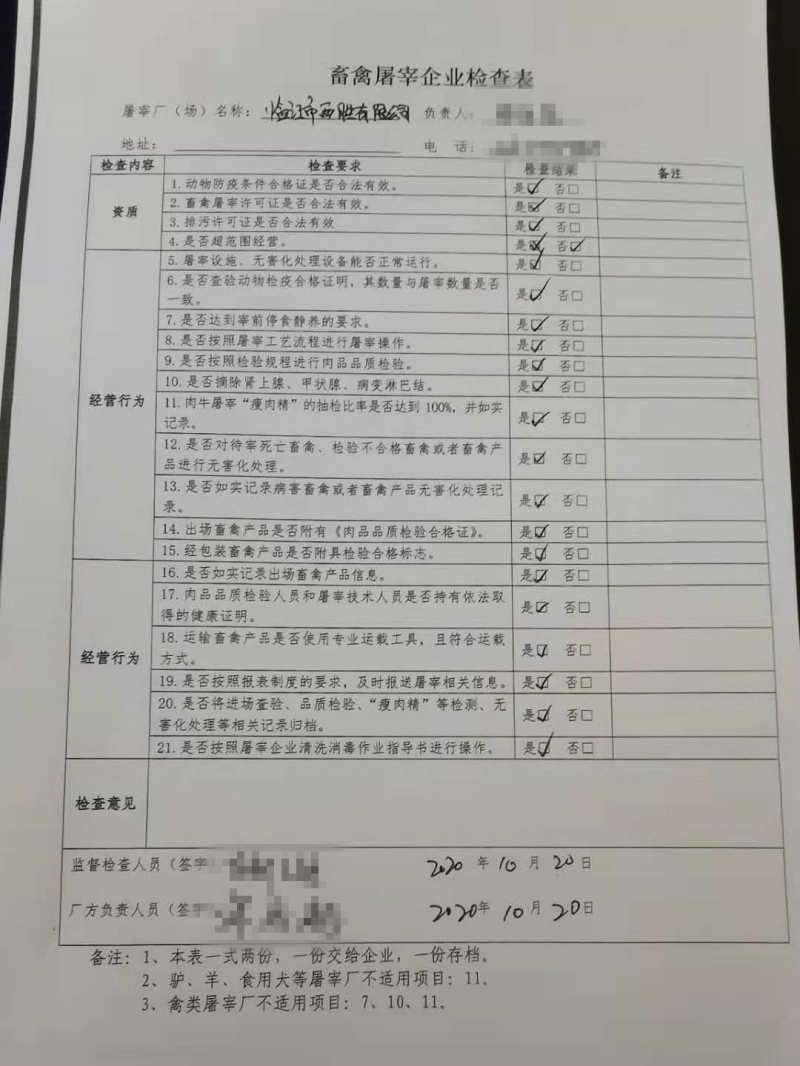 畜禽屠宰企业检查表
屠宰厂（场）名称：临江市西胜有限公司 负责人：
地址： 电 话：
检查内容 检查要求 检查结果 备注
资质
1.动物防疫条件合格证是否合法有效。 是☑ 否□
2.畜禽屠宰许可证是否合法有效。 是☑ 否□
3.排污许可证是否合法有效 是☑ 否□
4.是否超范围经营。 是☒ 否☑
经营行为
5.屠宰设施、无害化处理设备能否正常运行。 是☑ 否□
6.是否查验动物检疫合格证明，其数量与屠宰数量是否
一致。 是☑ 否□
7.是否达到宰前停食静养的要求。 是☑ 否□
8.是否按照屠宰工艺流程进行屠宰操作。 是☑ 否□
9.是否按照检验规程进行肉品品质检验。 是☑ 否□
10.是否摘除肾上腺、甲状腺、病变淋巴结。 是☑ 否□
11.肉牛屠宰“瘦肉精”的抽检比率是否达到 100%，并如实
记录。 是☑ 否□
12.是否对待宰死亡畜禽、检验不合格畜禽或者畜禽产
品进行无害化处理。 是☑ 否□
13.是否如实记录病害畜禽或者畜禽产品无害化处理记
录。 是☑ 否□
14.出场畜禽产品是否附有《肉品品质检验合格证》。 是☑ 否□
15.经包装畜禽产品是否附具检验合格标志。 是☑ 否□
经营行为
16.是否如实记录出场畜禽产品信息。 是☑ 否□
17.肉品品质检验人员和屠宰技术人员是否持有依法取
得的健康证明。 是☑ 否□
18.运输畜禽产品是否使用专业运载工具，且符合运载
方式。 是☑ 否□
19.是否按照报表制度的要求，及时报送屠宰相关信息。 是☑ 否□
20.是否将进场查验、品质检验、“瘦肉精”等检测、无
害化处理等相关记录归档。 是☑ 否□
21.是否按照屠宰企业清洗消毒作业指导书进行操作。 是☑ 否□
检查意见
监督检查人员（签字 2020 年 10 月 20 日
厂方负责人员（签字 2020 年 10 月 20 日
备注：1、本表一式两份，一份交给企业，一份存档。
2、驴、羊、食用犬等屠宰厂不适用项目：11。
3、禽类屠宰厂不适用项目：7、10、11。